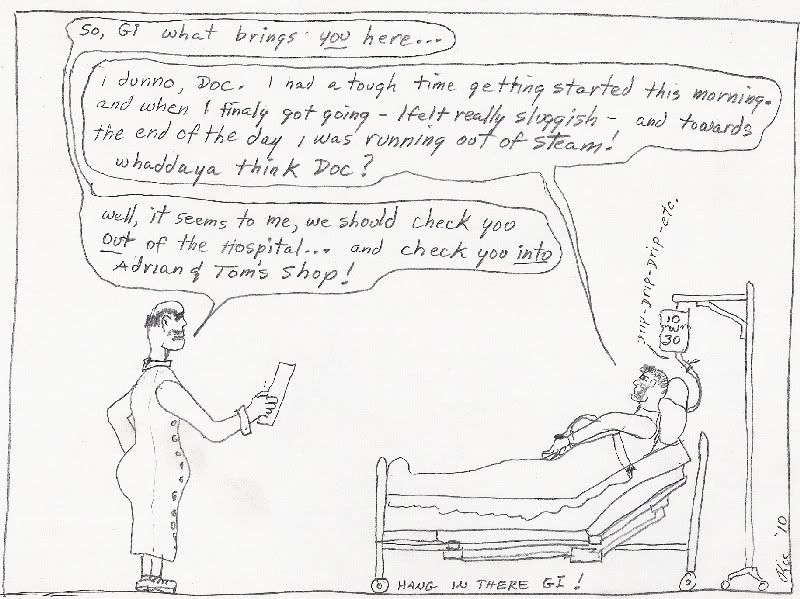 So, GI what brings you here...
i dunno, Doc. I had a tough time getting started this morning.
and when I finaly got going - I felt really sluggish - and towards
the end of the day i was running out of steam!
whaddaya think Doc?
well, it seems to me, we should check you
out of the Hospital... and check you into
Adrian & Tom's Shop!
Drip-Drip-Drip-etc.
10
W
30
HANG IN THERE GI!
'10